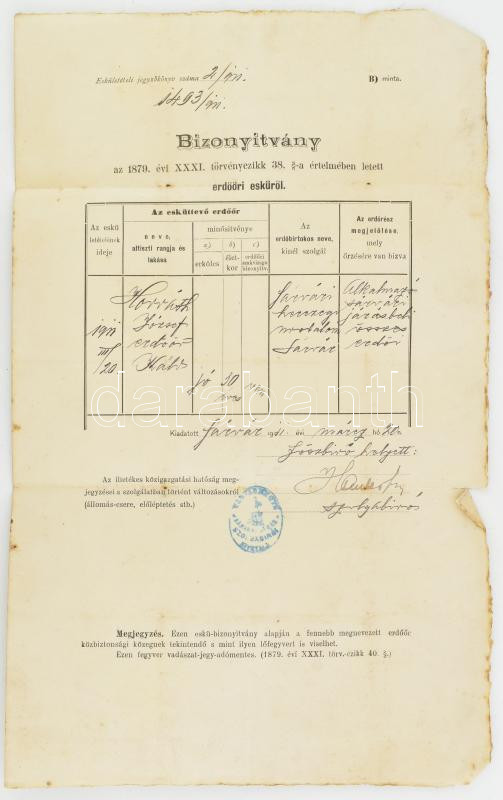 Eskületételi jegyzőkönyv száma 2/911.
B) minta.
1493/911.
Bizonyitvány
az 1879. évi XXXI. törvényczikk 38. §-a értelmében letett
erdőőri esküről.
Az eskü letételének ideje
Az esküttevő erdőőr
neve, altiszti rangja és lakása
minősitvénye
a) erkölcs
b) életkor
c) erdőőri szakvizsga bizonyitv.
Az erdőbirtokos neve, kinél szolgál
Az erdőrész megjelölése, mely őrzésére van bizva
1911 III/20.
Horváth
József
erdőőr
Káld
jó
30 éves
Sárvári
herczegi
uradalom
Sárvár
Alkalmazó
sárvári
járásbeli
összes
erdői
Kiadatott Sárvár 1911. évi márcz hó 20n
Főszbiró helyett:
szolgabiró
Az illetékes közigazgatási hatóság meg-
jegyzései a szolgálatban történt változásokról
(állomás-csere, előléptetés stb.)
darabanth
Megjegyzés. Ezen eskü-bizonyitvány alapján a fennebb megnevezett erdőőr
közbiztonsági közegnek tekintendő s mint ilyen lőfegyvert is viselhet.
Ezen fegyver vadászat-jegy-adómentes. (1879. évi XXXI. törv.-czikk 40. §.)